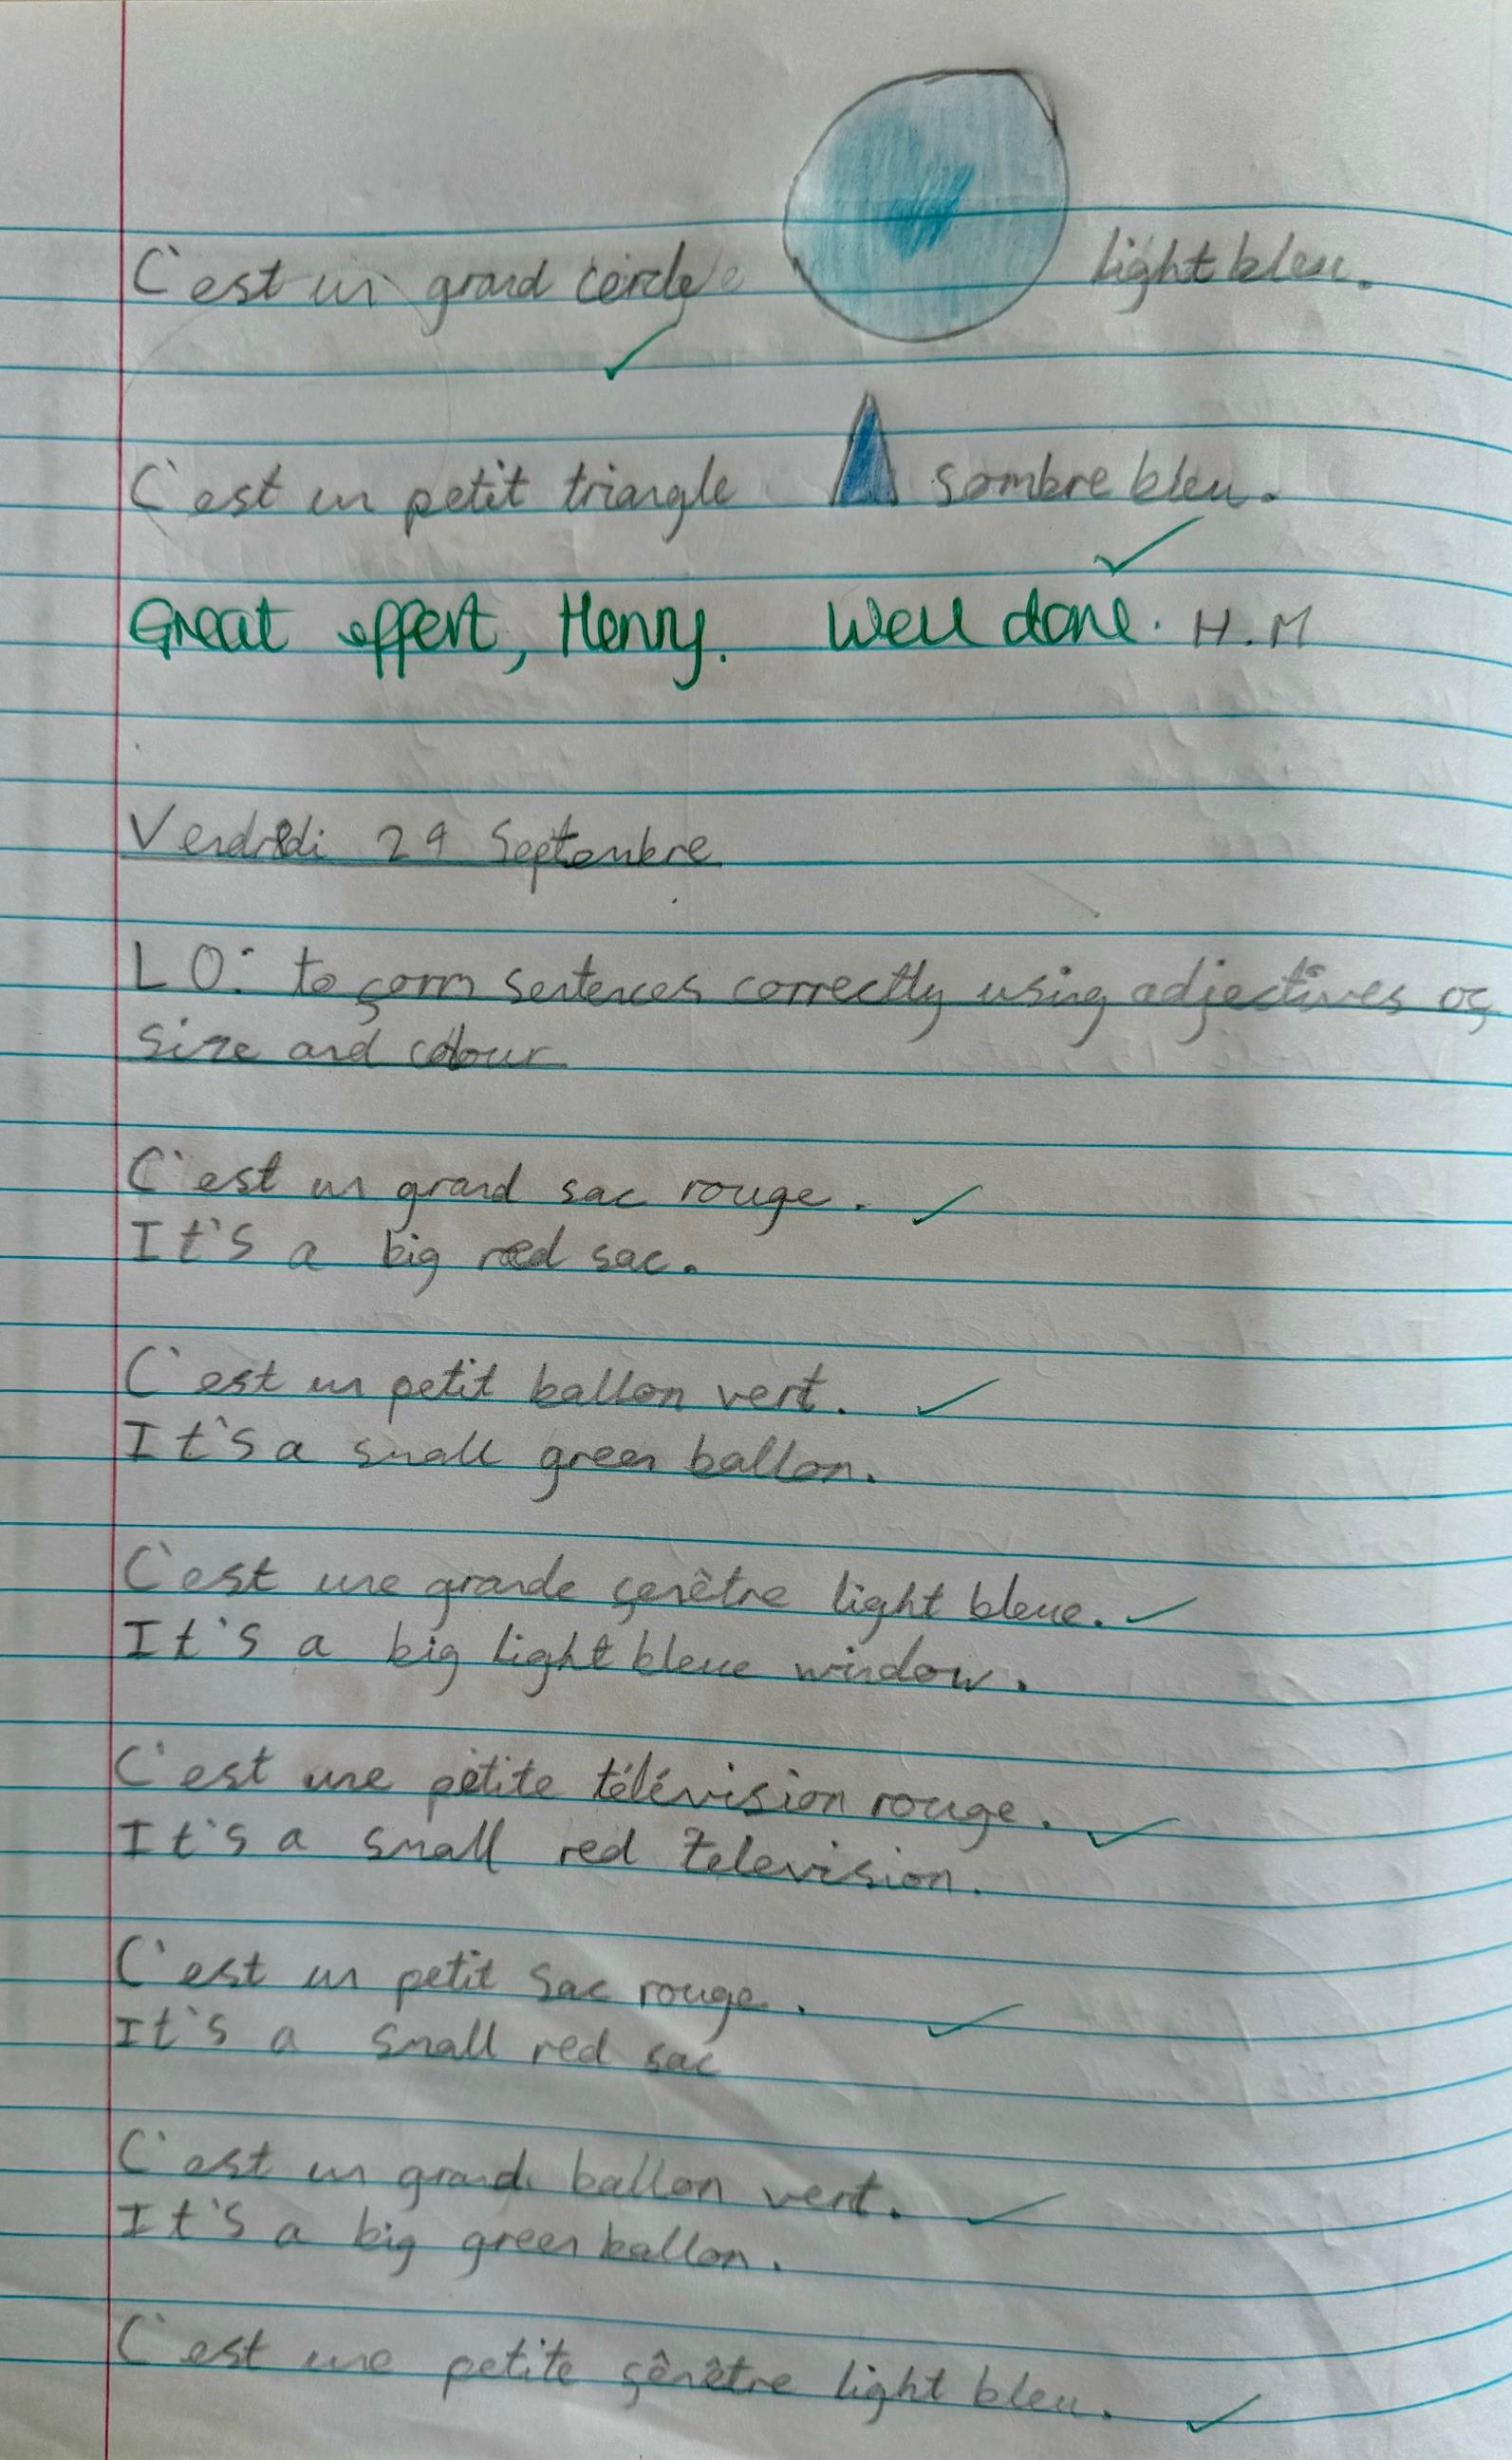 C'est un grand cercle light bleu.
C'est un petit triangle sombre bleu.
Great effort, Henry. Well done. H.M
Vendredi 29 Septembre
LO: to form sentences correctly using adjectives of
size and colour
C'est un grand sac rouge.
It's a big red sac.
C'est un petit ballon vert.
It's a small green ballon.
C'est une grande fenêtre light bleue.
It's a big light bleue window.
C'est une petite télévision rouge.
It's a small red television.
C'est un petit sac rouge.
It's a small red sac
C'est un grand ballon vert.
It's a big green ballon.
C'est une petite fênêtre light bleu.